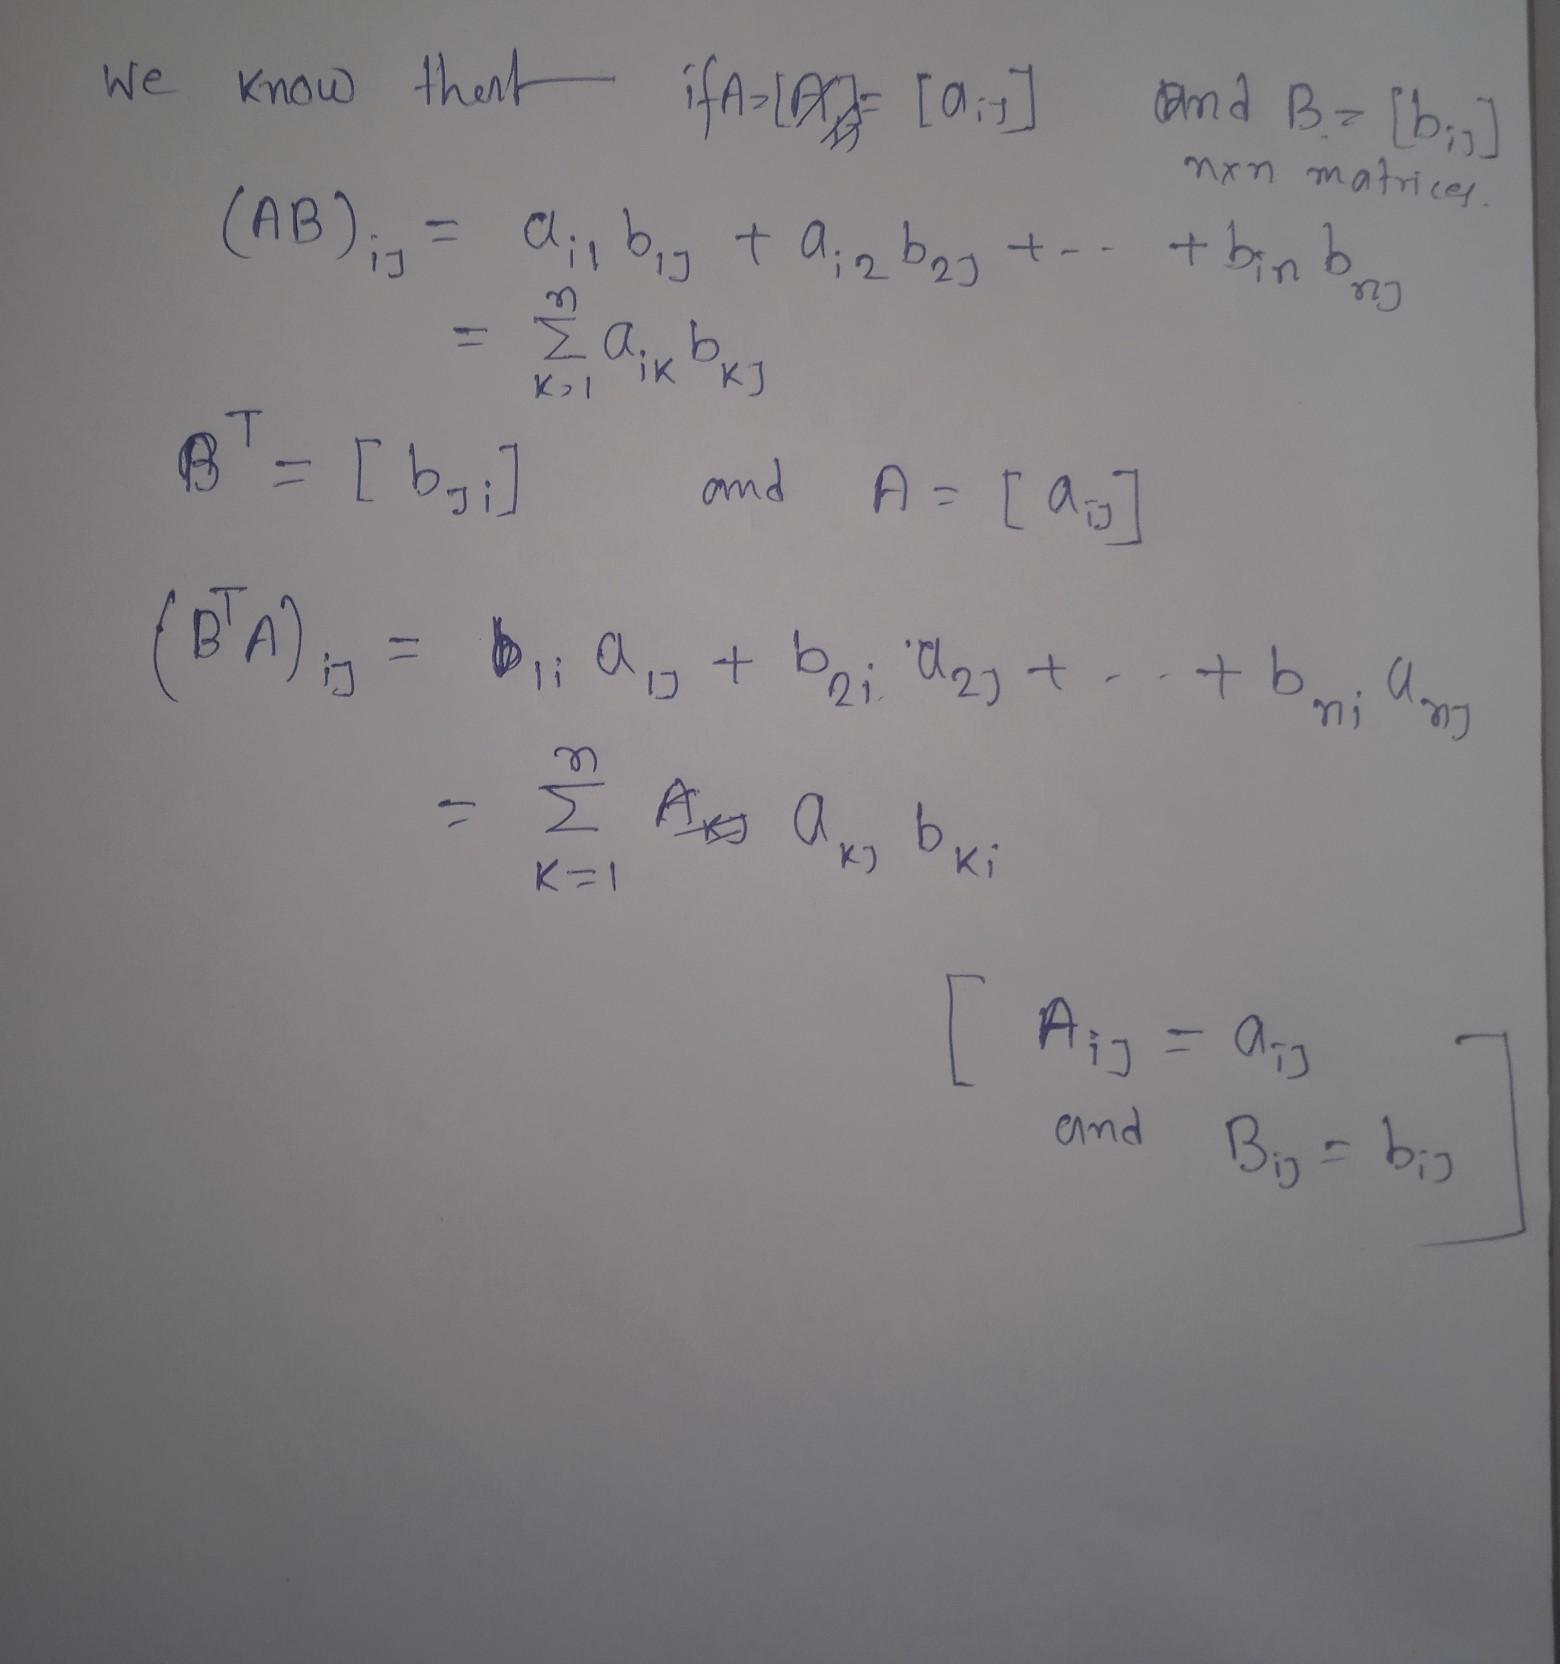 We know that if A = [a_ij] and B = [b_ij]
n×n matrices.
(AB)_ij = a_i1 b_1j + a_i2 b_2j + -- + b_in b_nj
= Σ_{K=1}^{n} a_iK b_Kj
B^T = [b_ji] and A = [a_ij]
(B^T A)_ij = b_1i a_1j + b_2i a_2j + --- + b_ni a_nj
= Σ_{K=1}^{n} a_Kj b_Ki
[ A_ij = a_ij
and B_ij = b_ij ]